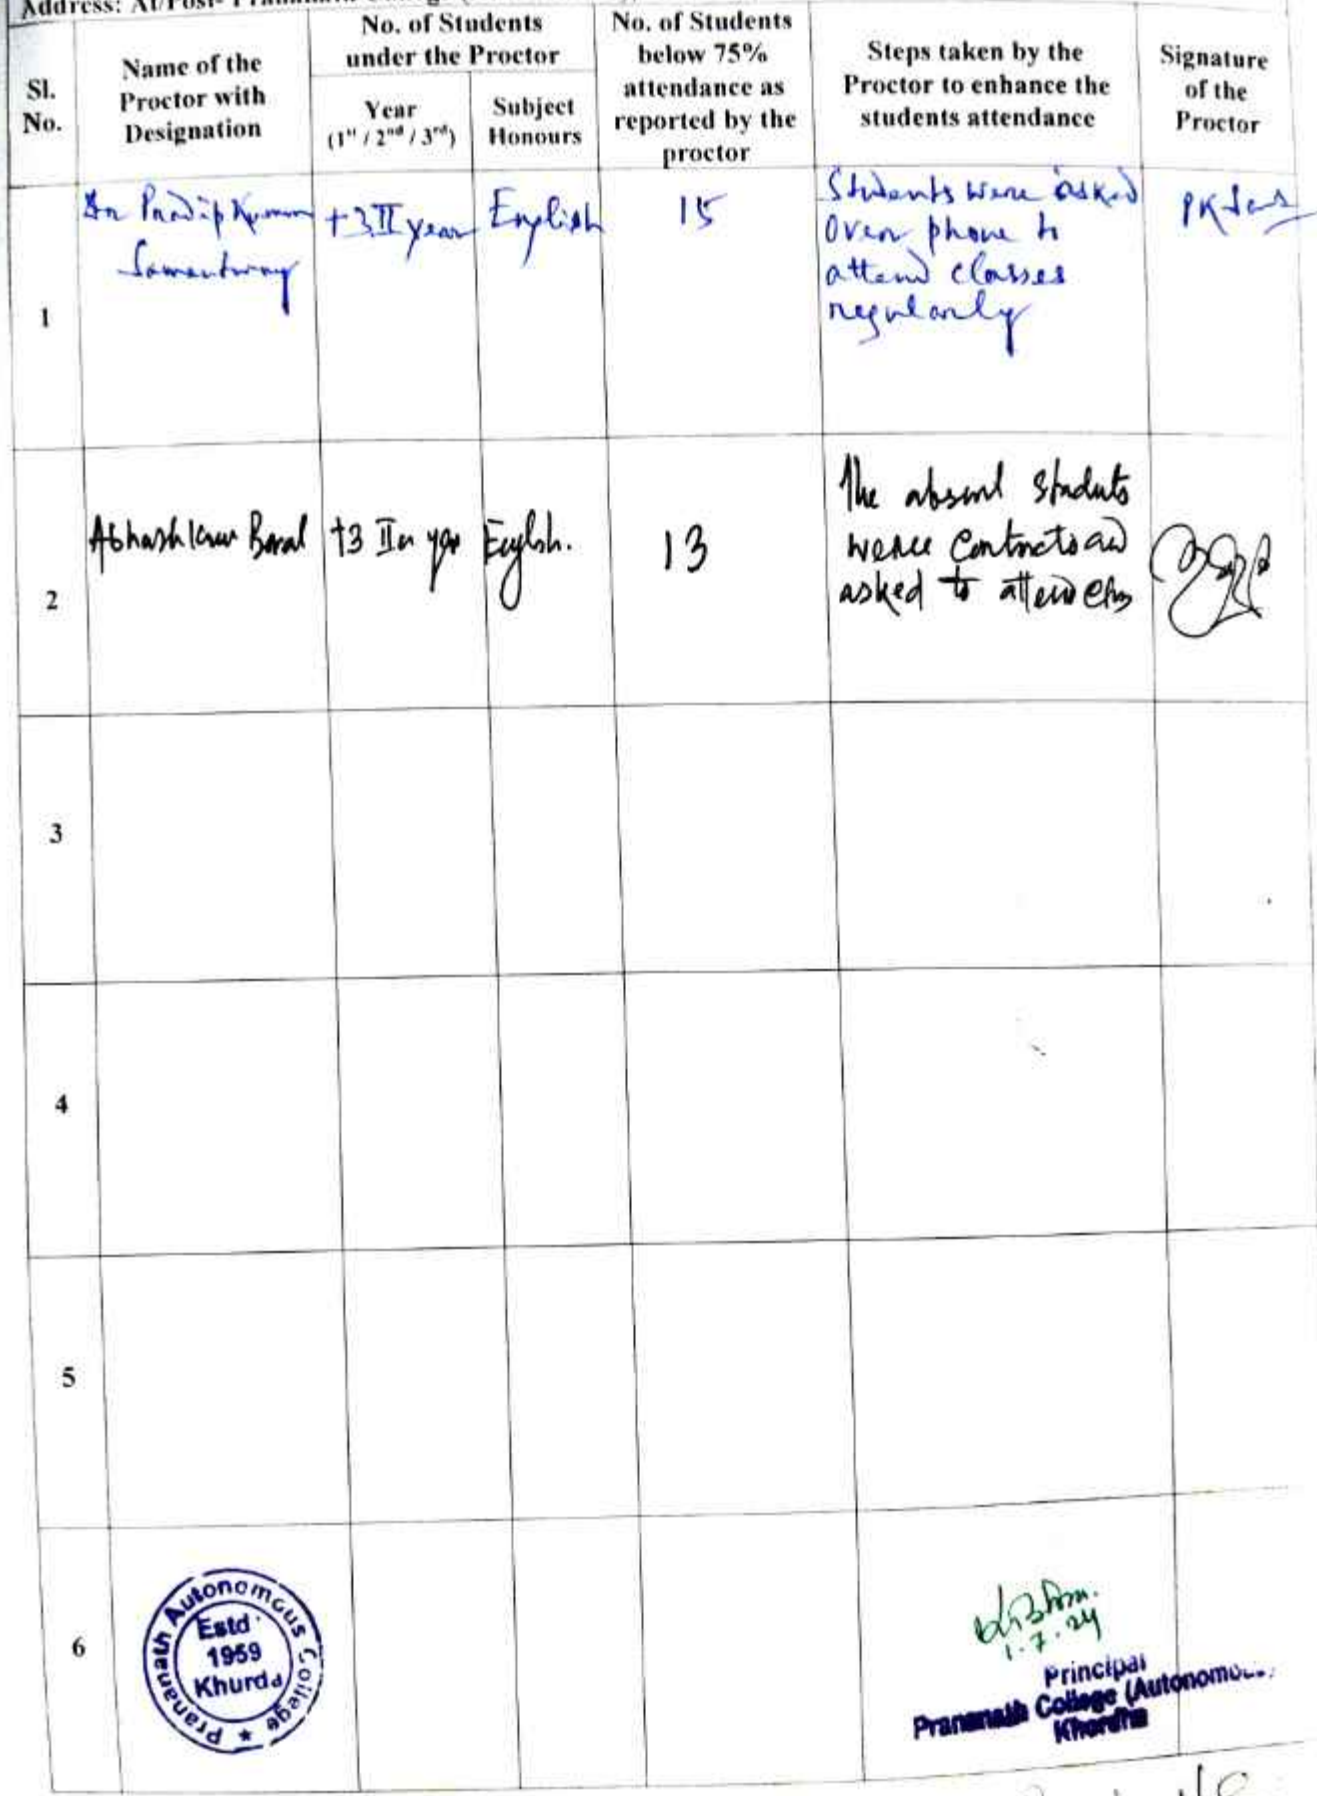 Address: At/Post- Prananath College
Sl. No.
Name of the Proctor with Designation
No. of Students under the Proctor
Year (1st / 2nd / 3rd)
Subject Honours
No. of Students below 75% attendance as reported by the proctor
Steps taken by the Proctor to enhance the students attendance
Signature of the Proctor
1
Dr Pradip Kumar
Samantray
+3 II year
English
15
Students were asked
over phone to
attend classes
regularly
2
Baral
+3 II
English.
13
The absent students
were
asked to attend
3
4
5
6
Prananath Autonomous College
Estd
1959
Khurda
1.7.24
Principal
Prananath College (Autonomous)
Khordha